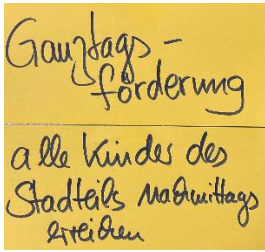 Ganztags-
förderung
alle Kinder des
Stadteils Nachmittags
erreichen